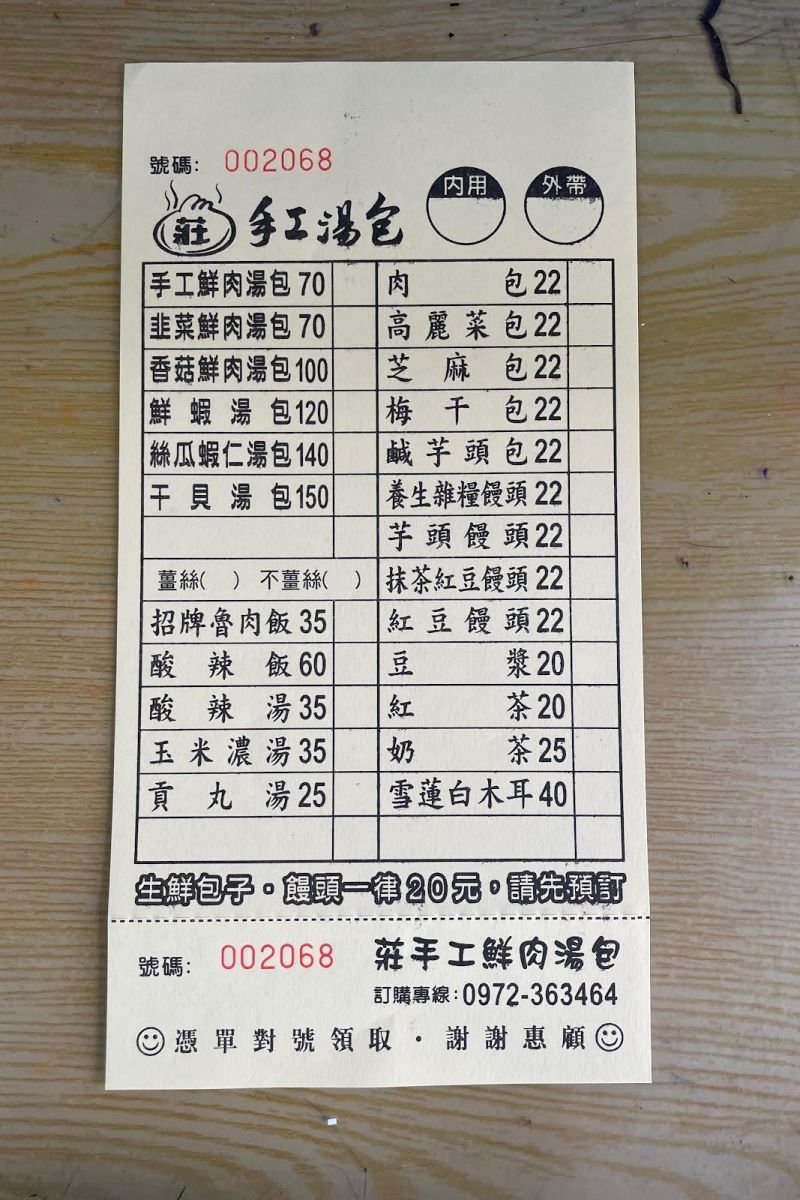 號碼: 002068
莊 手工湯包 內用 外帶
手工鮮肉湯包 70 肉包 22
韭菜鮮肉湯包 70 高麗菜包 22
香菇鮮肉湯包 100 芝麻包 22
鮮蝦湯包 120 梅干包 22
絲瓜蝦仁湯包 140 鹹芋頭包 22
干貝湯包 150 養生雜糧饅頭 22
芋頭饅頭 22
薑絲( ) 不薑絲( ) 抹茶紅豆饅頭 22
招牌魯肉飯 35 紅豆饅頭 22
酸辣飯 60 豆漿 20
酸辣湯 35 紅茶 20
玉米濃湯 35 奶茶 25
貢丸湯 25 雪蓮白木耳 40
生鮮包子。饅頭一律20元,請先預訂
號碼: 002068 莊手工鮮肉湯包
訂購專線:0972-363464
憑單對號領取・謝謝惠顧